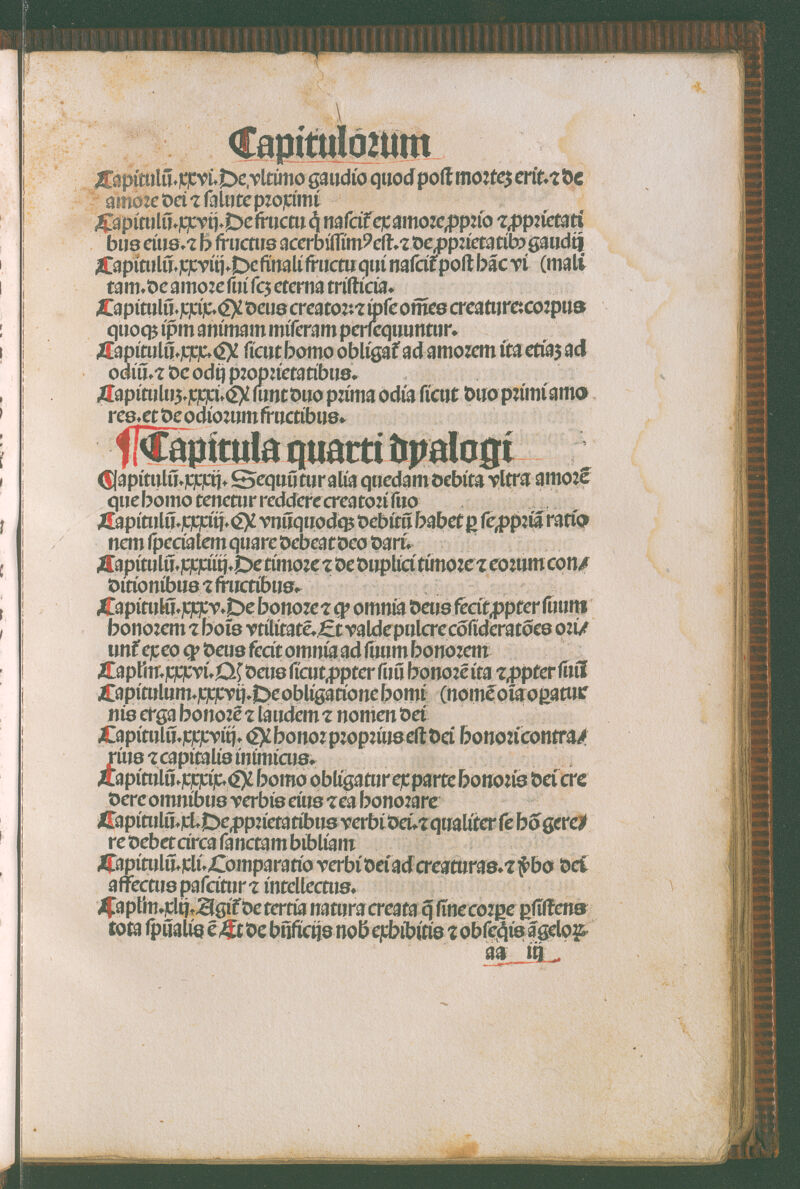 Capitulorum
Capitulū.xxvi.De vltimo gaudio quod post mortēꝫ erit.⁊ de
amore dei ⁊ salute proximi
Capitulū.xxvij.De fructu q̇ nascit᷑ ex amore ꝓprio ⁊ ꝓprietati
bus eius.⁊ ħ fructus acerbissimꝰ est.⁊ de ꝓprietatibꝫ gaudij
Capitulū.xxviij.De finali fructu qui nascit᷑ post hāc vi (mali
tam.de amore sui scꝫ eterna tristicia.
Capitulū.xxix.Ꝙ deus creator:⁊ ipse om̄es creature:corpus
quoqꝫ ip̄m animam miseram persequuntur.
Capitulū.xxx.Ꝙ sicut homo obligat᷑ ad amorem ita etiaꝫ ad
odiū.⁊ de odij proprietatibus.
Capituluꝫ.xxxi.Ꝙ sunt duo prima odia sicut duo primi amo
res.et de odiorum fructibus.
¶Capitula quarti dyalogi
Capitulū.xxxij. Sequūtur alia quedam debita vltra amorē
que homo tenetur reddere creatori suo
Capitulū.xxxiij.Ꝙ vnūquodqꝫ debitū habet ꝑ se ꝓpriā ratio
nem specialem quare debeat deo dari.
Capitulū.xxxiiij.De timore ⁊ de duplici timore ⁊ eorum con/
ditionibus ⁊ fructibus.
Capitulū.xxxv.De honore ⁊ ꝙ omnia deus fecit ꝓpter suum
honorem ⁊ hoīs vtilitatē.Et valde pulcre cōsideratōes ori/
unt᷑ ex eo ꝙ deus fecit omnia ad suum honorem
Caplm̄.xxxvi.Qꝭ deus sicut ꝓpter suū honorē ita ⁊ ꝓpter suū
Capitulum.xxxvij.De obligatione homi (nomē oīa oꝑatur
nis erga honorē ⁊ laudem ⁊ nomen dei
Capitulū.xxxviij. Ꝙ honor proprius est dei honori contra/
rius ⁊ capitalis inimicus.
Capitulū.xxxix.Ꝙ homo obligatur ex parte honoris dei cre
dere omnibus verbis eius ⁊ ea honorare
Capitulū.xl.De ꝓprietatibus verbi dei.⁊ qualiter se hō gere/
re debet circa sanctam bibliam
Capitulū.xli.Comparatio verbi dei ad creaturas.⁊ v̓bo dei
affectus pascitur ⁊ intellectus.
Caplm̄.xlij.Agit᷑ de tertia natura creata q̄ sine corꝑe ꝑsistens
tota spūalis ē Et de bn̄ficijs nob̄ exhibitis ⁊ obseq̇is āgeloꝝ
aa iij